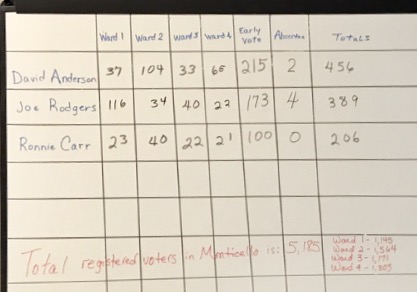 Ward 1 Ward 2 Ward 3 Ward 4 Early Vote Absentee Totals
David Anderson 37 104 33 65 215 2 456
Joe Rodgers 116 34 40 22 173 4 389
Ronnie Carr 23 40 22 21 100 0 206
Total registered voters in Monticello is: 5,185
Ward 1 - 1,145
Ward 2 - 1,564
Ward 3 - 1,171
Ward 4 - 1,305